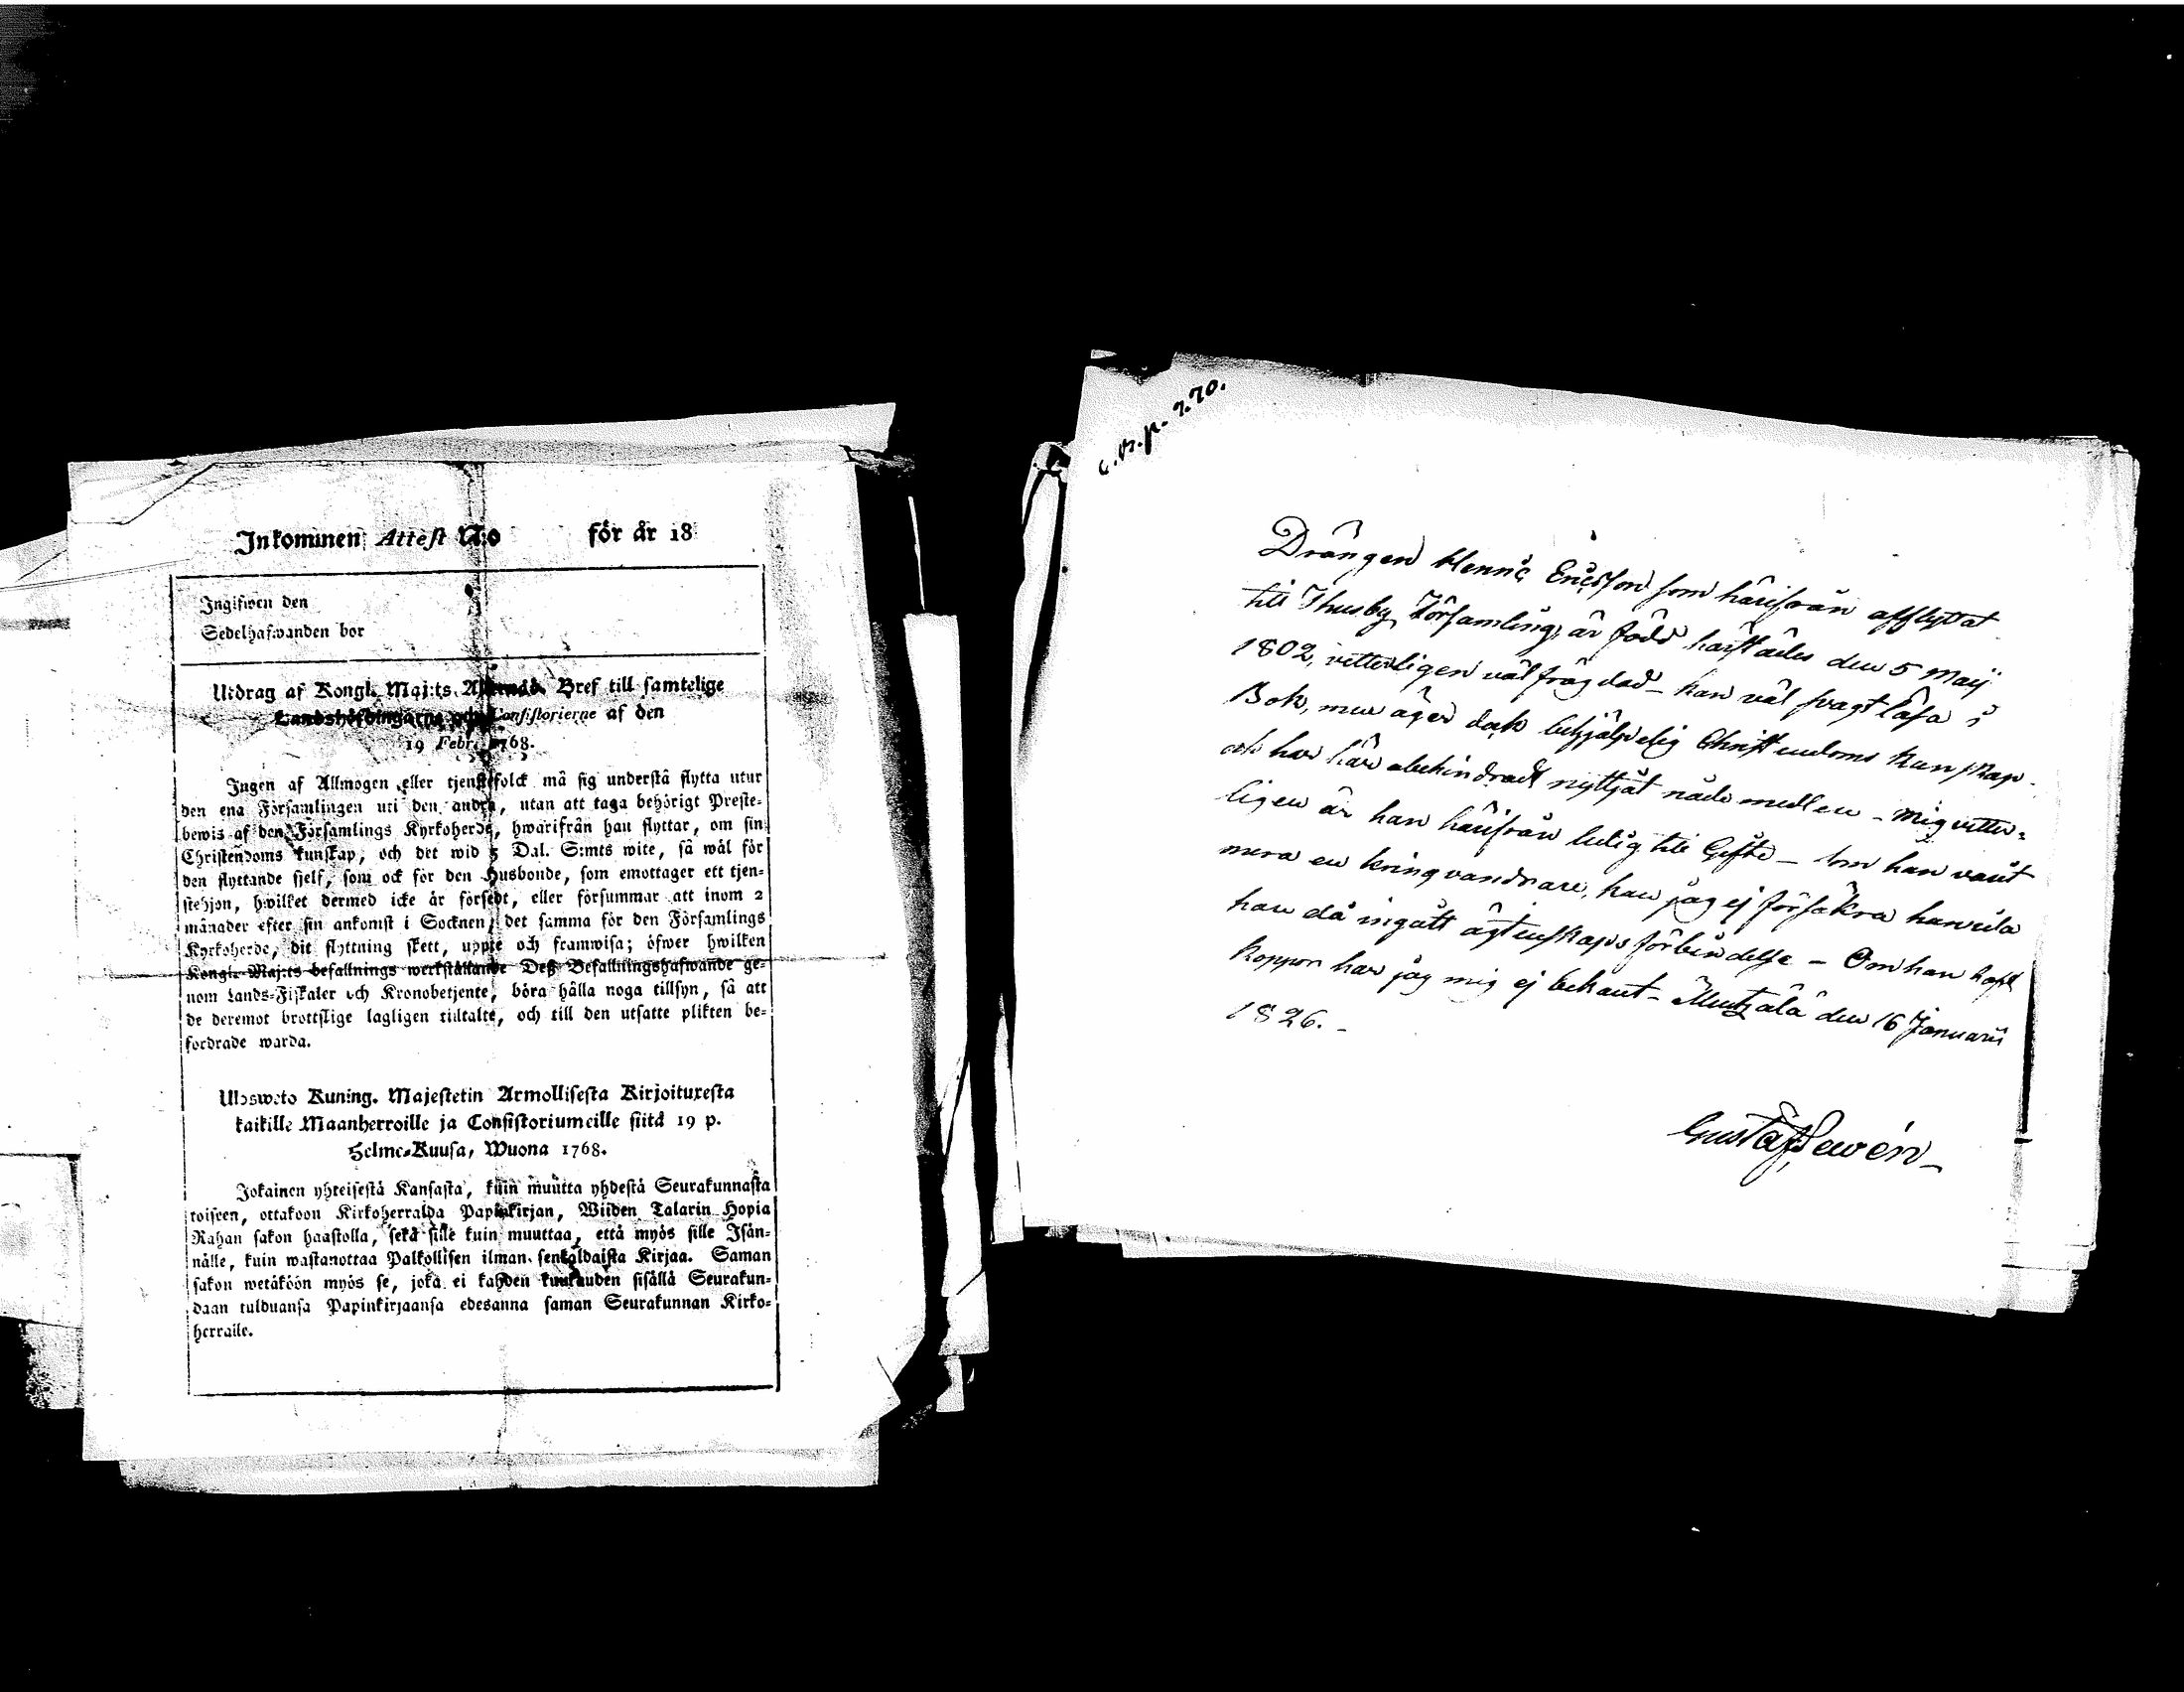 Inkommen Attest N:o för år 18
Ingifwen den
Sedelhafwanden bor
Utdrag af Kongl. Maj:ts Allernåd. Bref till samtelige
Landshöfdingarne och Consistorierne af den
19 Febr. 1768.
Ingen af Allmogen eller tjenstefolck må sig understå flytta utur
den ena Församlingen uti den andra, utan att taga behörigt Preste-
bewis af den Församlings Kyrkoherde, hwarifrån han flyttar, om sin
Christendoms kunskap, och det wid 5 Dal. S:mts wite, så wäl för
den flyttande sjelf, som ock för den Husbonde, som emottager ett tjen-
stehjon, hwilket dermed icke är försedt, eller försummar att inom 2
månader efter sin ankomst i Socknen, det samma för den Församlings
Kyrkoherde, dit flyttning skett, uppte och framwisa; öfwer hwilken
Kongl. Maj:ts befallnings werkställande Deß Befallningshafwande ge-
nom Lands-Fiskaler och Kronobetjente, böra hålla noga tillsyn, så att
de deremot brottslige lagligen tilltalte, och till den utsatte plikten be-
fordrade warda.
Ulosweto Kuning. Majestetin Armollisesta Kirjoituxesta
kaikille Maanherroille ja Consistoriumeille siitä 19 p.
Helme-Kuusa, Wuona 1768.
Jokainen yhteisestä Kansasta, kuin muutta yhdestä Seurakunnasta
toiseen, ottakoon Kirkoherralda Papinkirjan, Wiiden Talarin Hopia
Rahan sakon haastolla, sekä sille kuin muuttaa, että myös sille Isän-
nälle, kuin wastanottaa Palkollisen ilman senkaldaista Kirjaa. Saman
sakon wetäköön myös se, joka ei kahden kuukauden sisällä Seurakun-
daan tulduansa Papinkirjaansa edesanna saman Seurakunnan Kirko-
herralle.
c.B.p. 270.
Drängen Henric Ericsson som härifrån afflyttat
till Thusby Församling, är född härstädes den 5 Maij
1802, vitterligen väl frägdad – kan väl svagt läsa i
Bok, men äger dock behjälpelig Christendoms kunskap
och har här obehindradt nyttjat nådemedlen – Mig vitter-
ligen är han härifrån ledig till Gifte – Som han varit
mera en kringvandrare, kan jag ej försäkra huruvida
han då ingått ägtenskaps förbindelse – Om han haft
koppor har jag mig ej bekant – Mentzälä den 16 Januarii
1826. –
Gustaf